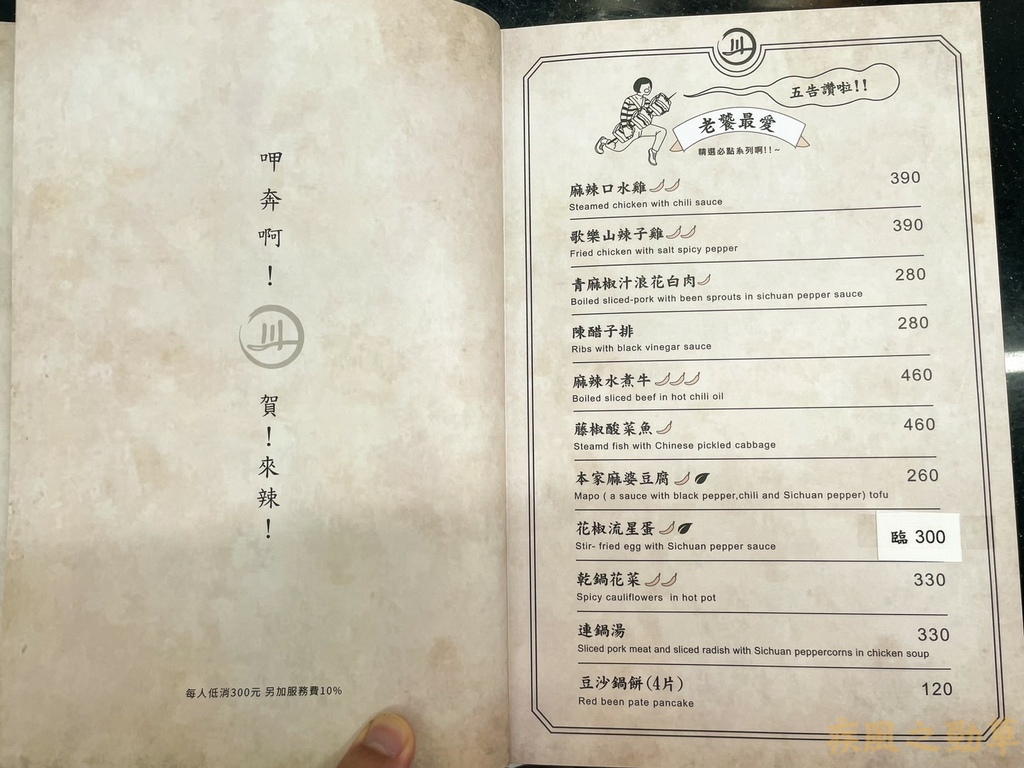 呷
奔
啊
！
川
賀
！
來
辣
！
每人低消300元 另加服務費10%
川
五告讚啦!!
老饕最愛
精選必點系列啊!!~
麻辣口水雞 390
Steamed chicken with chili sauce
歌樂山辣子雞 390
Fried chicken with salt spicy pepper
青麻椒汁浪花白肉 280
Boiled sliced-pork with been sprouts in sichuan pepper sauce
陳醋子排 280
Ribs with black vinegar sauce
麻辣水煮牛 460
Boiled sliced beef in hot chili oil
藤椒酸菜魚 460
Steamd fish with Chinese pickled cabbage
本家麻婆豆腐 260
Mapo ( a sauce with black pepper,chili and Sichuan pepper) tofu
花椒流星蛋 臨 300
Stir- fried egg with Sichuan pepper sauce
乾鍋花菜 330
Spicy cauliflowers in hot pot
連鍋湯 330
Sliced pork meat and sliced radish with Sichuan peppercorns in chicken soup
豆沙鍋餅(4片) 120
Red been pate pancake